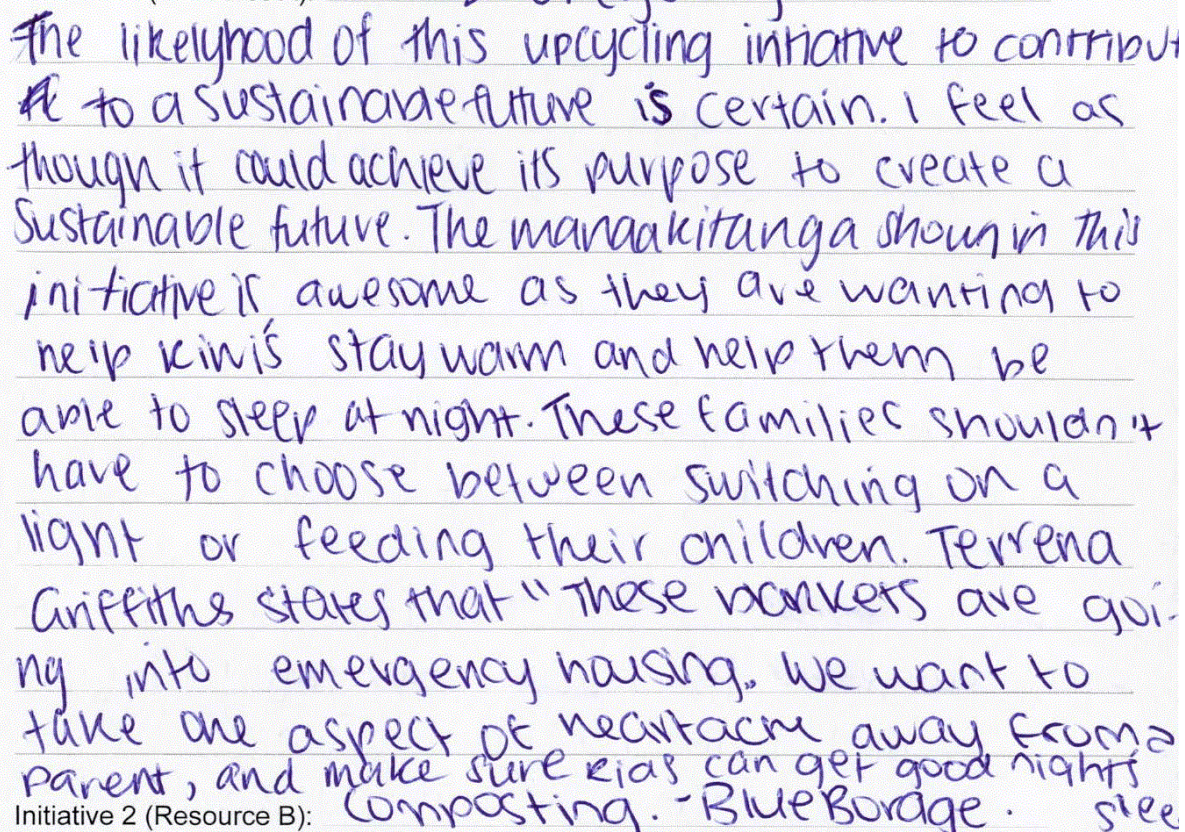 The likelyhood of this upcycling intiative to contribut
to a sustainable future is certain. I feel as
though it could achieve its purpose to create a
sustainable future. The manaakitanga shown in this
initiative is awesome as they are wanting to
help kiwi's stay warm and help them be
able to sleep at night. These families shouldn't
have to choose between switching on a
light or feeding their children. Terrena
Griffiths states that "These blankets are goi-
ng into emergency housing. We want to
take one aspect of heartache away from a
parent, and make sure kids can get good nights
slee
Initiative 2 (Resource B): Composting. - Blue Borage.